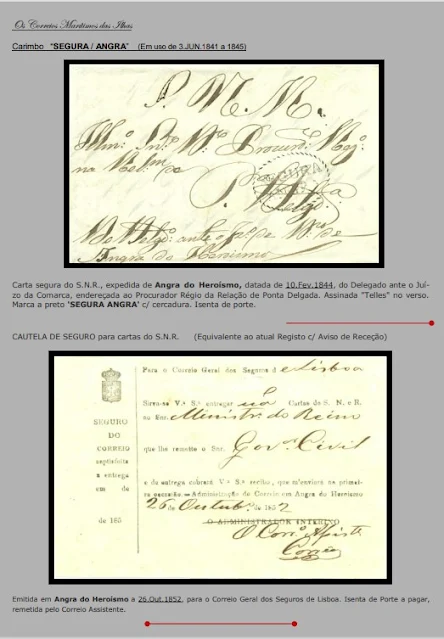 Os Correios Marítimos das Ilhas
Carimbo "SEGURA / ANGRA" (Em uso de 3.JUN.1841 a 1845)
S. N. R.
Procurd. Reg.
SEGURA
Angra do Heroismo
Carta segura do S.N.R., expedida de Angra do Heroísmo, datada de 10.Fev.1844, do Delegado ante o Juí-
zo da Comarca, endereçada ao Procurador Régio da Relação de Ponta Delgada. Assinada "Telles" no verso.
Marca a preto 'SEGURA ANGRA' c/ cercadura. Isenta de porte.
CAUTELA DE SEGURO para cartas do S.N.R. (Equivalente ao atual Registo c/ Aviso de Receção)
Para o Correio Geral dos Seguros de Lisboa
Sirva-se V.ª S.ª entregar ua Cartas de S. N. e R.
ao Snr. Ministr. do Reino
SEGURO
DO
CORREIO
que lhe remette o Snr. Gov.or Civil
a entrega
em de
e da entrega cobrará V.ª S.ª recibo, que m'enviará na primei-
ra occasião — Administração do Correio em Angra do Heroismo
26 de Outub.º de 1852
de 185
O ADMINISTRADOR INTERINO
O Corr.º Assist.
Emitida em Angra do Heroísmo a 26.Out.1852, para o Correio Geral dos Seguros de Lisboa. Isenta de Porte a pagar,
remetida pelo Correio Assistente.